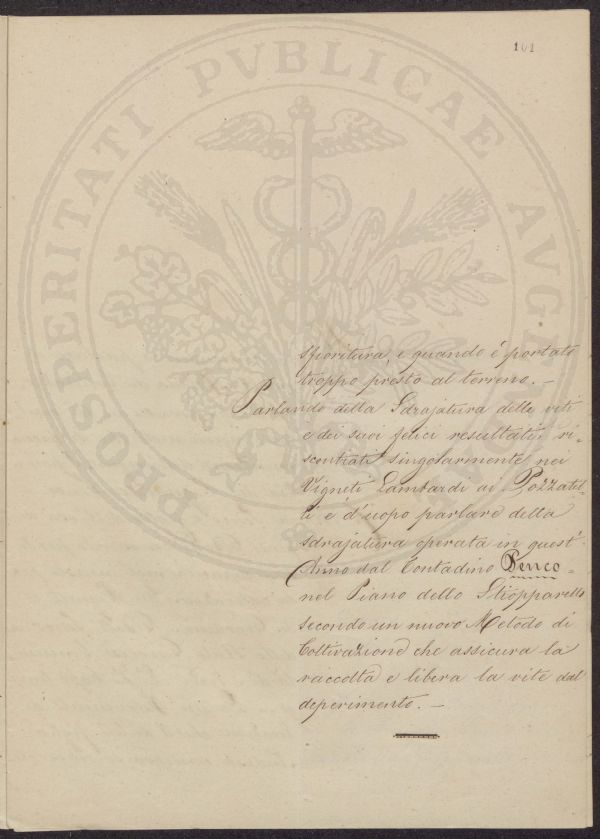 101
PROSPERITATI PVBLICAE AVGE
sfioritura, e quando è portato
troppo presto al terreno. —
Parlando della Sdrajatura delle viti
e dei suoi felici resultati, ri=
scontrati singolarmente nei
Vigneti Lambardi ai Pozzatel=
li è d'uopo parlare della
sdrajatura operata in quest'
Anno dal Contadino Pence=
nel Piano dello Stropparello
secondo un nuovo Metodo di
Coltivazione che assicura la
raccolta e libera la vite dal
deperimento. —